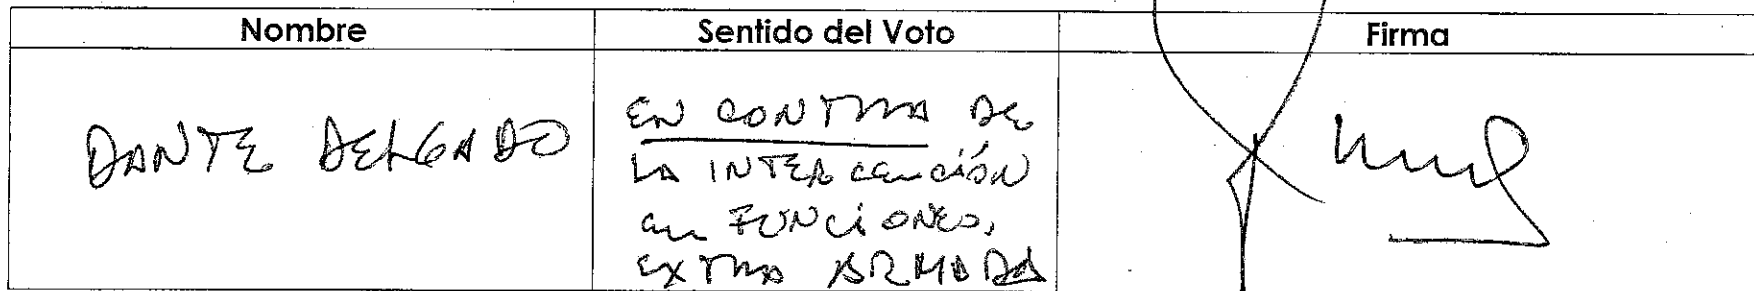 Nombre Sentido del Voto Firma
DANTE DELGADO
EN CONTRA DE
LA
FUNCIONES,
EXTRA ARMADA